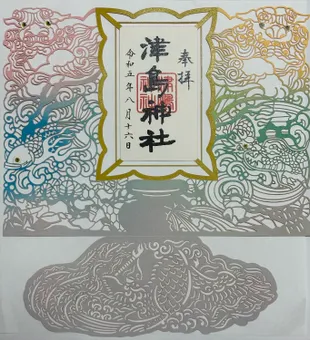 奉拝
津島神社
令和五年八月十六日